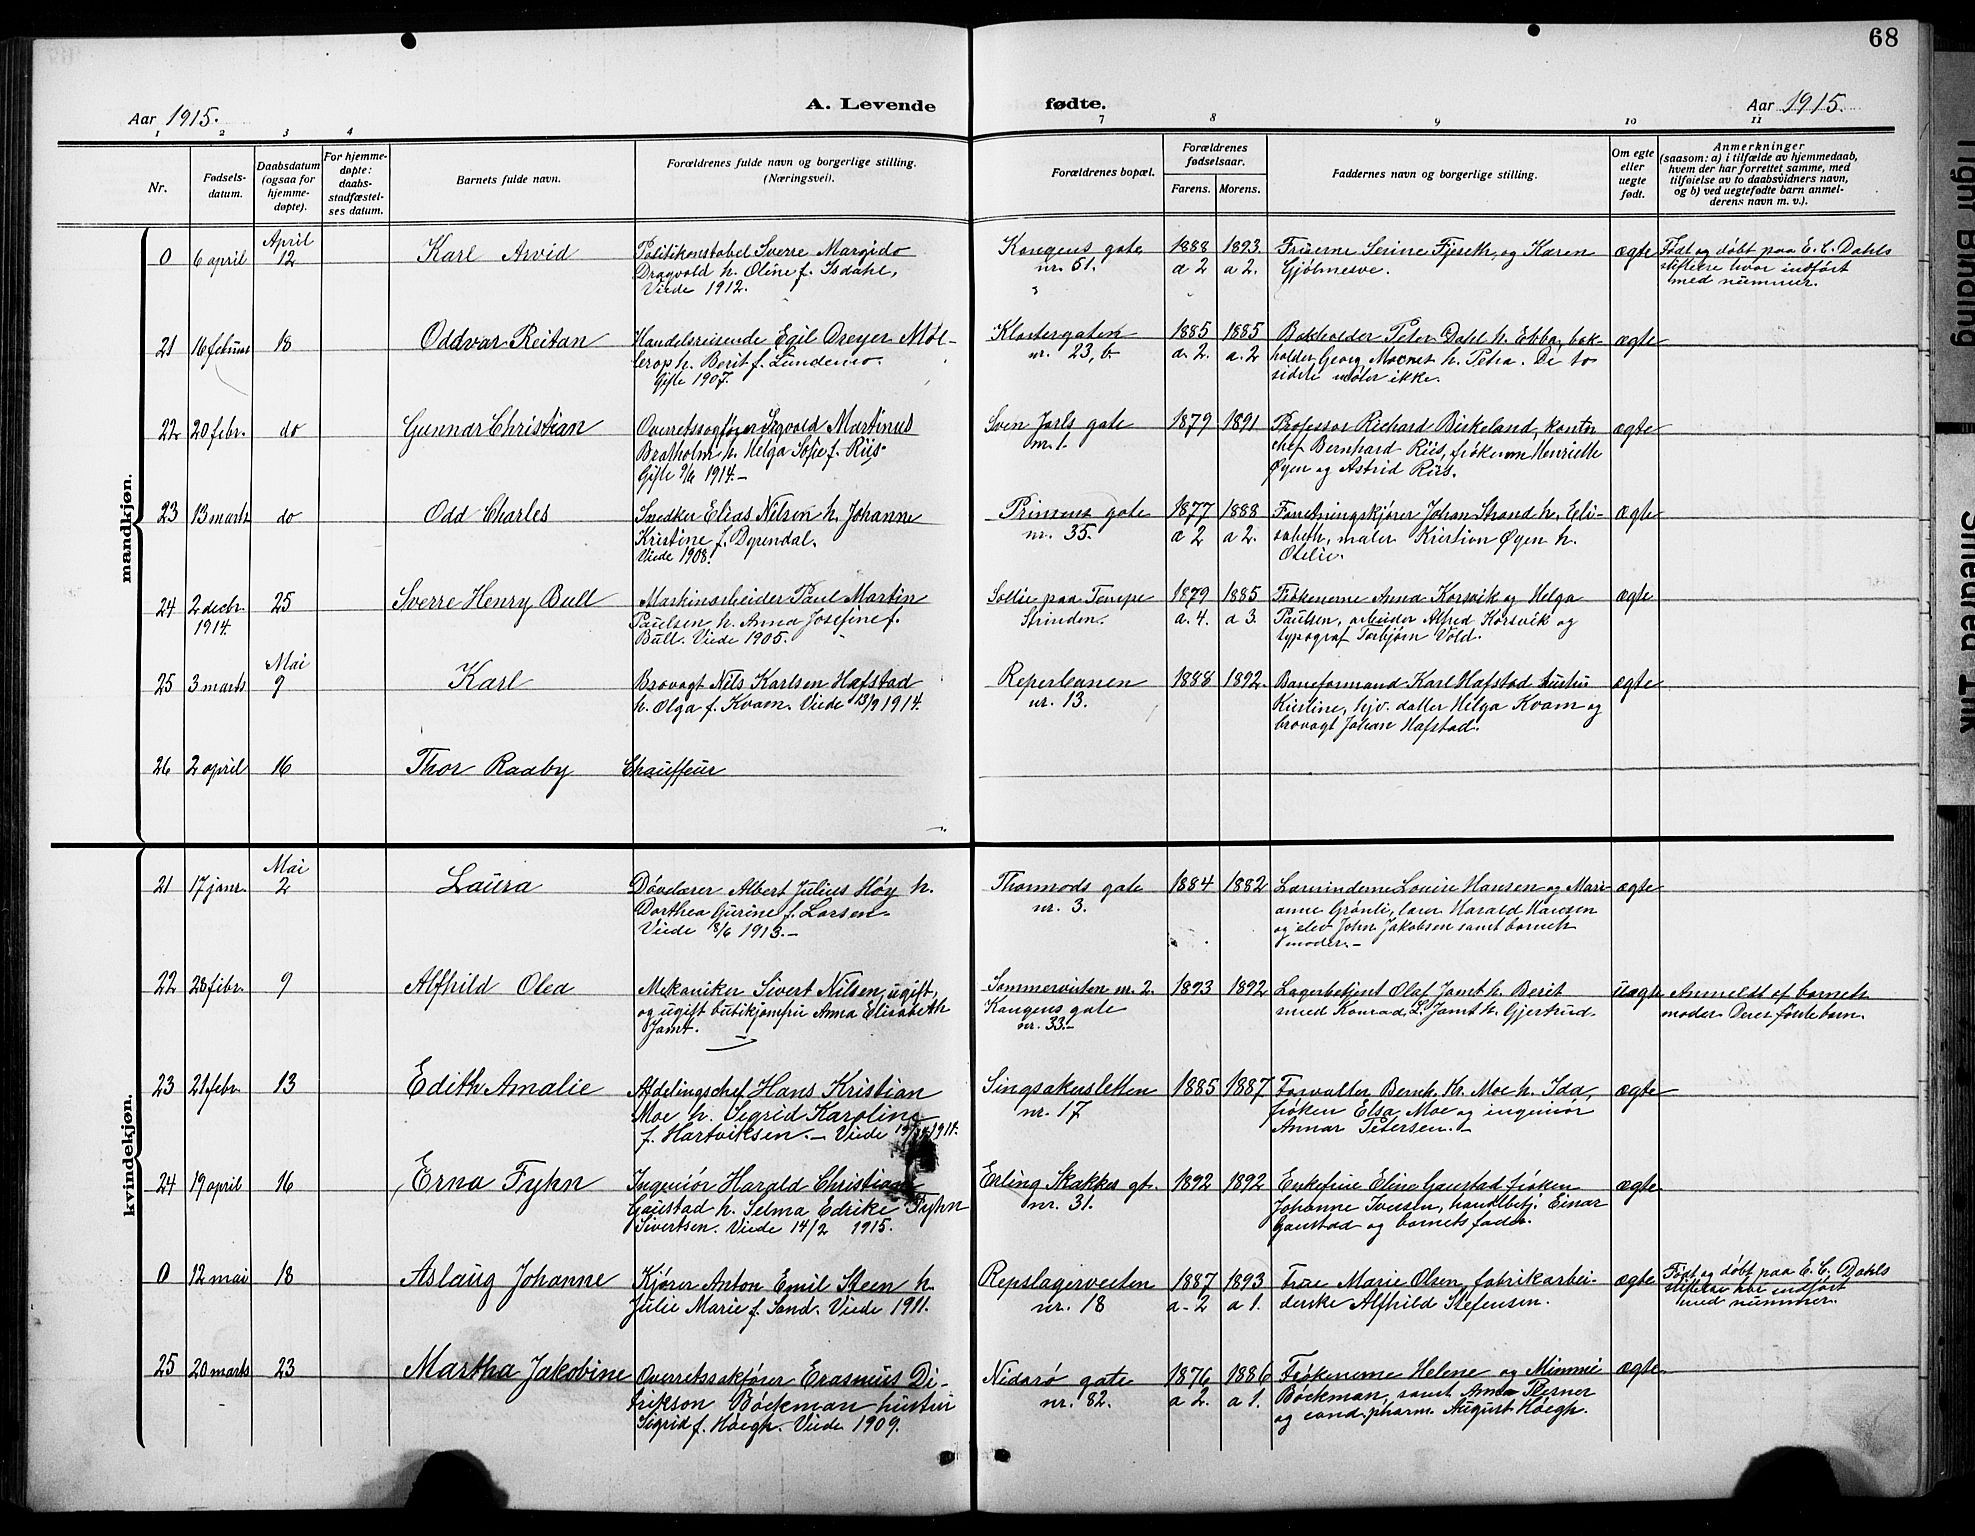 68
Aar 1915.
A. Levende fødte.
Aar 1915.
1 2 3 4 7 8 9 10 11
Nr.
Fødsels-
datum.
Daabsdatum
(ogsaa for
hjemme-
døpte).
For hjemme-
døpte:
daabs-
stadfæstel-
ses datum.
Barnets fulde navn.
Forældrenes fulde navn og borgerlige stilling.
(Næringsvei).
Forældrenes bopæl.
Forældrenes
fødselsaar.
Farens. Morens.
Faddernes navn og borgerlige stilling.
Om egte
eller
uegte
født.
Anmerkninger
(saasom: a) i tilfælde av hjemmedaab,
hvem der har forrettet samme, med
tilføielse av to daabsvidners navn,
og b) ved uegtefødte barn anmel-
derens navn m. v.).
mandkjøn.
0 6 april April 12 Karl Arvid
Politikonstabel Sverre Margido
Dragvold h. Oline f. Isdahl,
Viede 1912.
Kongens gate
nr. 51.
1888
a 2
1893
a 2.
Fruerne Serine Fjeseth og Karen
Gjølmesve.
ægte
Født og døbt paa E. C. Dahls
stiftelse hvor indført
med nummer.
21 16 februar 18 Oddvar Reitan
Handelsreisende Egil Dreyer Møl-
lerop h. Berit f. Lundemo.
Gifte 1907.
Klostergaten
nr. 23, b
1885
a. 2.
1885
a. 2
Bokholder Peter Dahl h. Ebba, bok-
holder Georg Moenes h. Petra. De to
sidste møter ikke.
ægte
22 20 febr. do Gunnar Christian
Overretssagfører Sigvald Martinus
Bratholm h. Helga Sofie f. Riis.
Gifte 9/6 1914.-
Sven Jarls gate
nr. 1.
1879 1891
Professor Richard Birkeland, kontor
chef Bernhard Riis, frøkenerne Henriette
Øyen og Astrid Riis.
ægte
23 13 marts do Odd Charles
Snedker Elias Nilsen h. Johanne
Kristine f. Dyrendal.
Viede 1908.
Prinsens gate
nr. 35.
1877
a 2
1888
a 2.
Forretningskjører Johan Strand h. Eli-
sabeth, maler Kristian Øyen h.
Otelie.
ægte
24 2 decbr.
1914.
25 Sverre Henry Bull
Maskinarbeider Paul Martin
Paulsen h. Anna Josefine f.
Bull. Viede 1905.
Sollie paa Tempe
Strinden.
1879
a. 4.
1885
a 3.
Frøkenerne Anna Korsvik og Helga
Paulsen, arbeider Alfred Korsvik og
typograf Torbjørn Vold.
ægte
25 3 marts Mai 9 Karl
Brovagt Nils Karlsen Hafstad
h. Olga f. Kvam. Viede 13/9 1914.
Reperbanen
nr. 13.
1888 1892.
Baneformand Karl Hafstad hustru
Kirstine, hjv. datter Helga Kvam og
brovagt Johan Hafstad.
ægte
26 2 april 16 Thor Raaby Chauffeur
kvindekjøn.
21 17 janr. Mai 2 Laura
Døvelærer Albert Julius Høy h.
Dorthea Gurine f. Larsen.
Viede 18/6 1913.-
Thormods gate
nr. 3.
1884 1882
Lærerinderne Louise Hansen og Mari-
anne Grønli, lærer Harald Hansen
og elev John Jakobsen samt barnets
moder.-
ægte
22 28 febr. 9 Alfhild Olea
Mekaniker Sivert Nilsen, ugift,
og ugift butikjomfru Anna Elisabeth
Jamt.
Sommerveiten nr. 2.
Kongens gate
nr. 33.-
1893 1892
Lagerbetjent Olaf Jamt h. Berit
smed Konrad L. Jamt h. Gjertrud.
uægte
Anmeldt af barnets
moder. Deres første barn.
23 21 febr. 13 Edith Amalie
Afdelingschef Hans Kristian
Moe h. Sigrid Karoline
f. Hartviksen.- Viede 1911.
Singsakersletten
nr. 17
1885 1887
Forvalter Bernh. Kr. Moe h. Ida,
frøken Elsa Moe og ingeniør
Annar Petersen.-
ægte
24 19 april 16 Erna Fyhn
Ingeniør Harald Christian
Gaustad h. Selma Edrike Fyhn
Sivertsen. Viede 14/2 1915.
Erling Skakkes gt.
nr. 31.
1892 1892
Enkefrue Eline Gaustad frøken
Johanne Iversen, handlbetj. Einar
Gaustad og barnets fader.
ægte
0 12 mai 18 Aslaug Johanne
Kjører Anton Emil Steen h.
Julie Marie f. Sand. Viede 1911.
Repslagerveiten
nr. 18
1887
a. 2
1893
a 1.
Frue Marie Olsen, fabrikarbei-
derske Alfhild Stefensen.
ægte
Født og døbt paa E. C. Dahls
stiftelse hvor indført
med nummer.
25 20 marts 23 Martha Jakobine
Overretssakfører Erasmus Di-
drikson Bøckman hustru
Sigrid f. Høegh. Viede 1909.
Nidarø gate
nr. 82.
1876
a 2.
1886
a 1.
Frøkenerne Helene og Mimmi
Bøckman, samt Anna Berner
og cand. pharm. August Høegh.
ægte